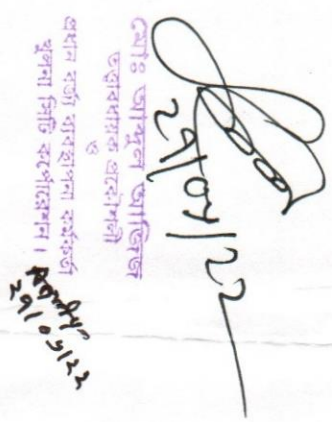 ২৯/০৫/২২
মোঃ আব্দুল আজিজ
তত্ত্বাবধায়ক প্রকৌশলী
ও
প্রধান বর্জ্য ব্যবস্থাপনা কর্মকর্তা
খুলনা সিটি কর্পোরেশন।
29/05/22